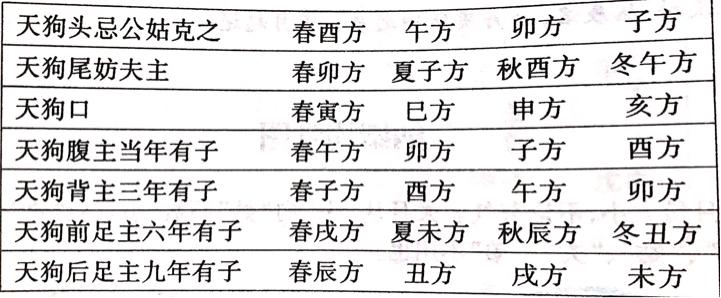 天狗头忌公姑克之 春酉方 午方 卯方 子方
天狗尾妨夫主 春卯方 夏子方 秋酉方 冬午方
天狗口 春寅方 巳方 申方 亥方
天狗腹主当年有子 春午方 卯方 子方 酉方
天狗背主三年有子 春子方 酉方 午方 卯方
天狗前足主六年有子 春戌方 夏未方 秋辰方 冬丑方
天狗后足主九年有子 春辰方 丑方 戌方 未方